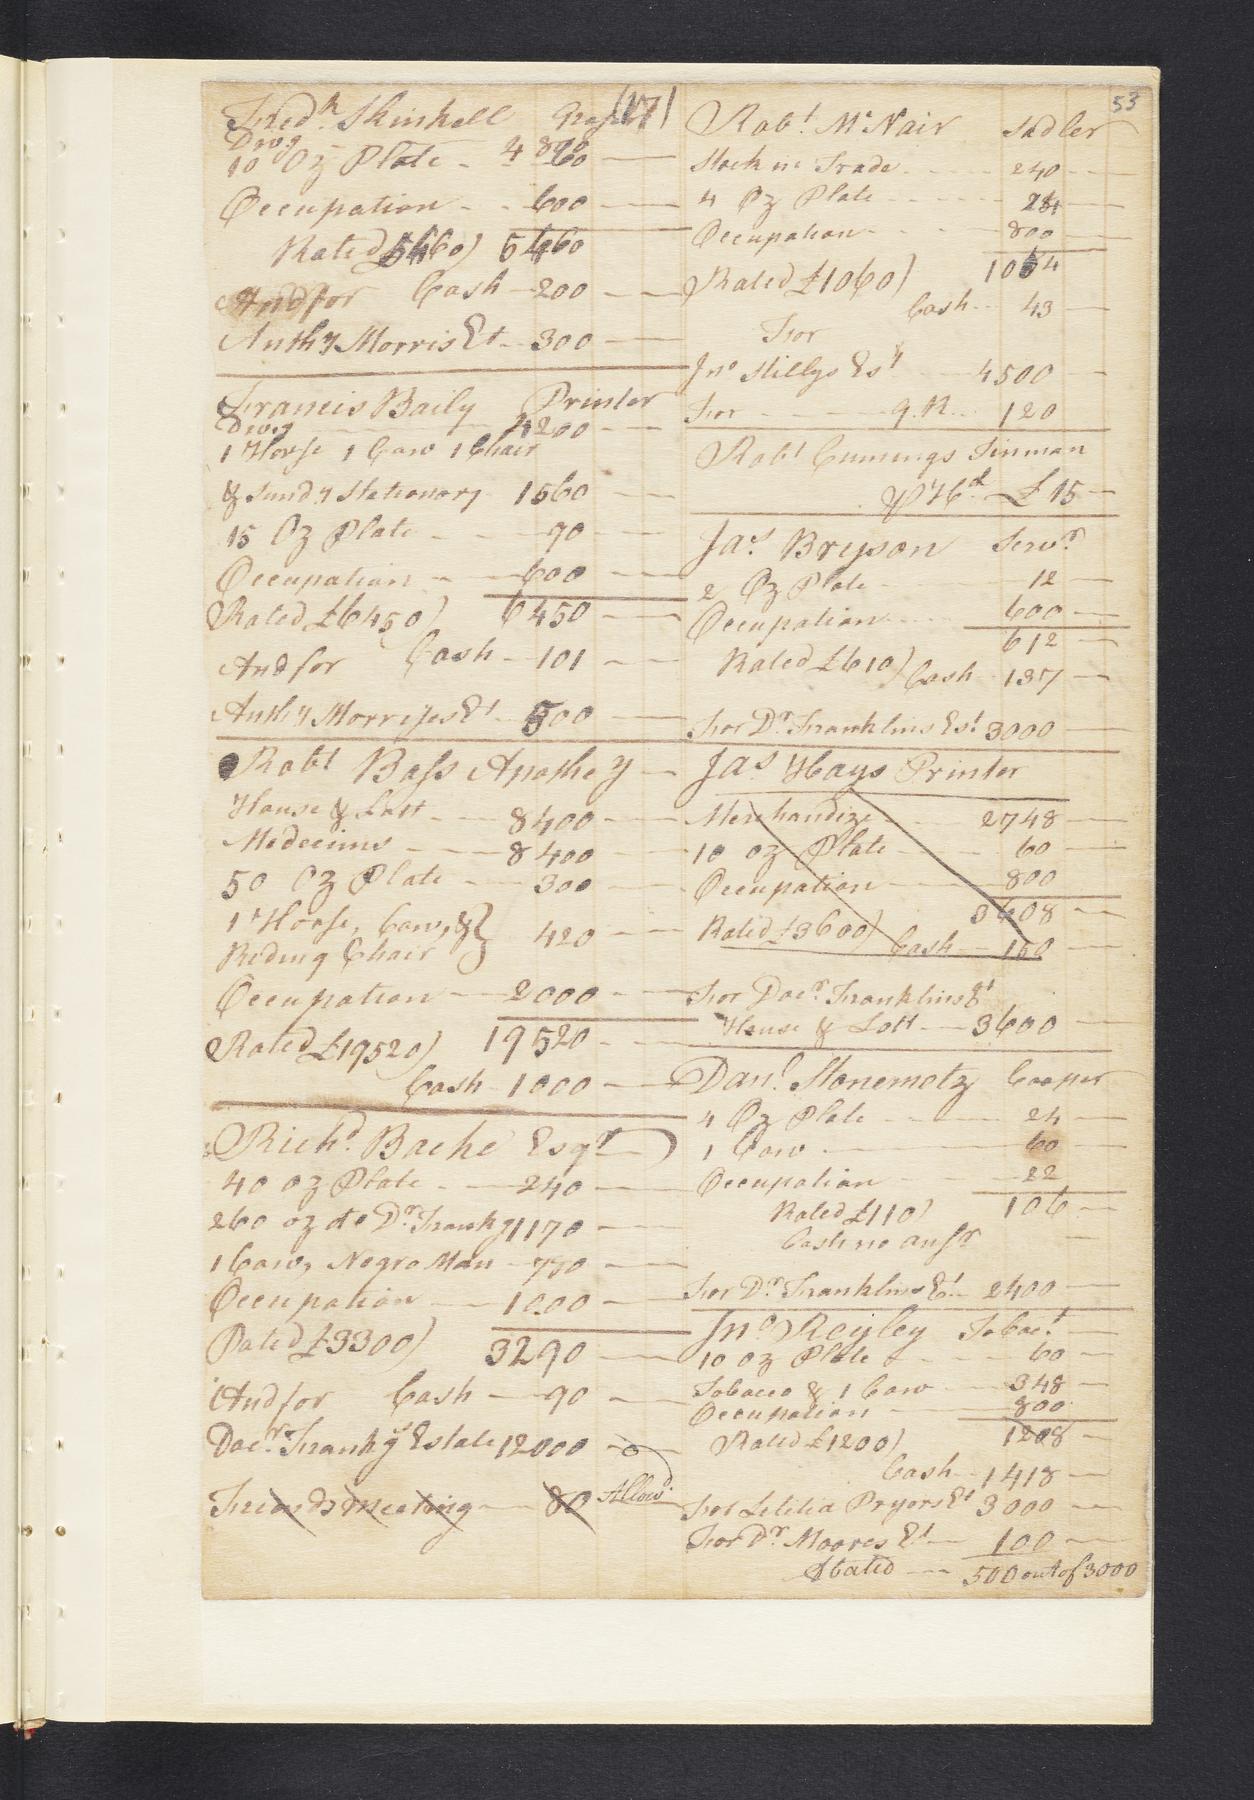 53
(17)
Fred.k Shinkell
Dwg
10 Oz Plate - 4860
Occupation - - 600
Rated £5460) 5460
Cash - 200
And for
Anthy Morris Et - 300
Francis Baily Printer
Dwg 4200
1 Horse 1 Cow 1 Chair
& Sundy Stationory 1560
15 Oz Plate - - 90
Occupation - - 600
Rated £6450) 6450
Cash - 101
And for
Anthy Morrises Et - 500
Robt Bass Apothey
House & Lott - - 8400
Medecines - - 8400
50 Oz Plate - - 300
1 Horse, Cow, & } 420
Riding Chair
Occupation - 2000
Rated £19520) 19520
Cash 1000
Richd Bache Esqr
40 oz Plate - - 240
260 oz do Dr Frank 1170
1 Cow, Negro Man -
Occupation - 1000
Rated £3300) 3290
And for Cash - 90
Docr Frank Estate 12000
Friends Meeting - 80 Allowd
Robt McNair Sadler
Stock in Trade - - 240
4 Oz Plate - - - 24
Occupation - - - 800
Rated £1060) 1064
Cash - 43
For
Jno Stillys Est - 4500
For - - G.R. - 120
Robt Cummings Tinman
£15
Jas Bryson Servr
2 Oz Plate 12
Occupation - - 600
612
Rated £610) Cash 137
For Dr Franklins Est 3000
Jas Hays Printer
Merchandize - - 2748
10 oz Plate - - 60
Occupation - - 800
3608
Rated £3600) Cash - 150
For Docr Franklins Et
House & Lott - 3600
Danl Stonemetz Cooper
4 Oz Plate - - 24
1 Cow - - 60
Occupation - - 22
Rated £110) 106
Cash no ansr
For Dr Franklins Et - 2400
Jno Reyley Tobact
10 oz Plate - - 60
Tobacco & 1 Cow - 348
Occupation - - 800
Rated £1200) 1208
Cash - 1418
For Letitia Pryors Et 3000
For Dr Moores Et - 100
Abated - 500 out of 3000